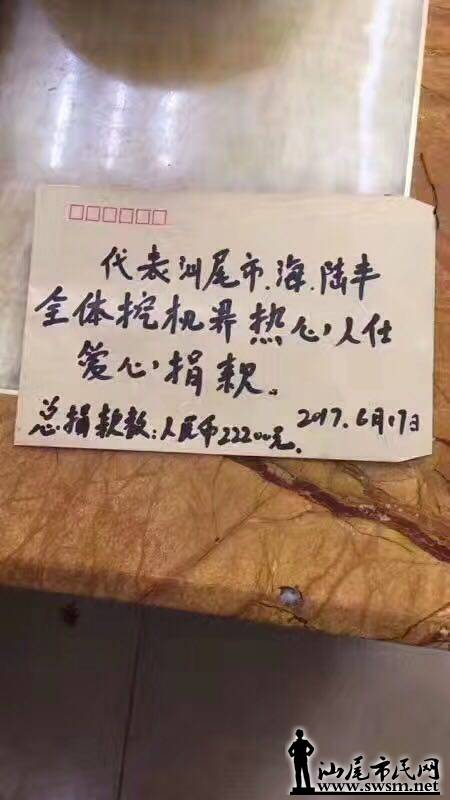 代表汕尾市.海.陆丰
全体挖机界热心人仕
爱心捐款。
总捐款数:人民币22200元.
2017.6月17日
汕尾市民网
www.swsm.net